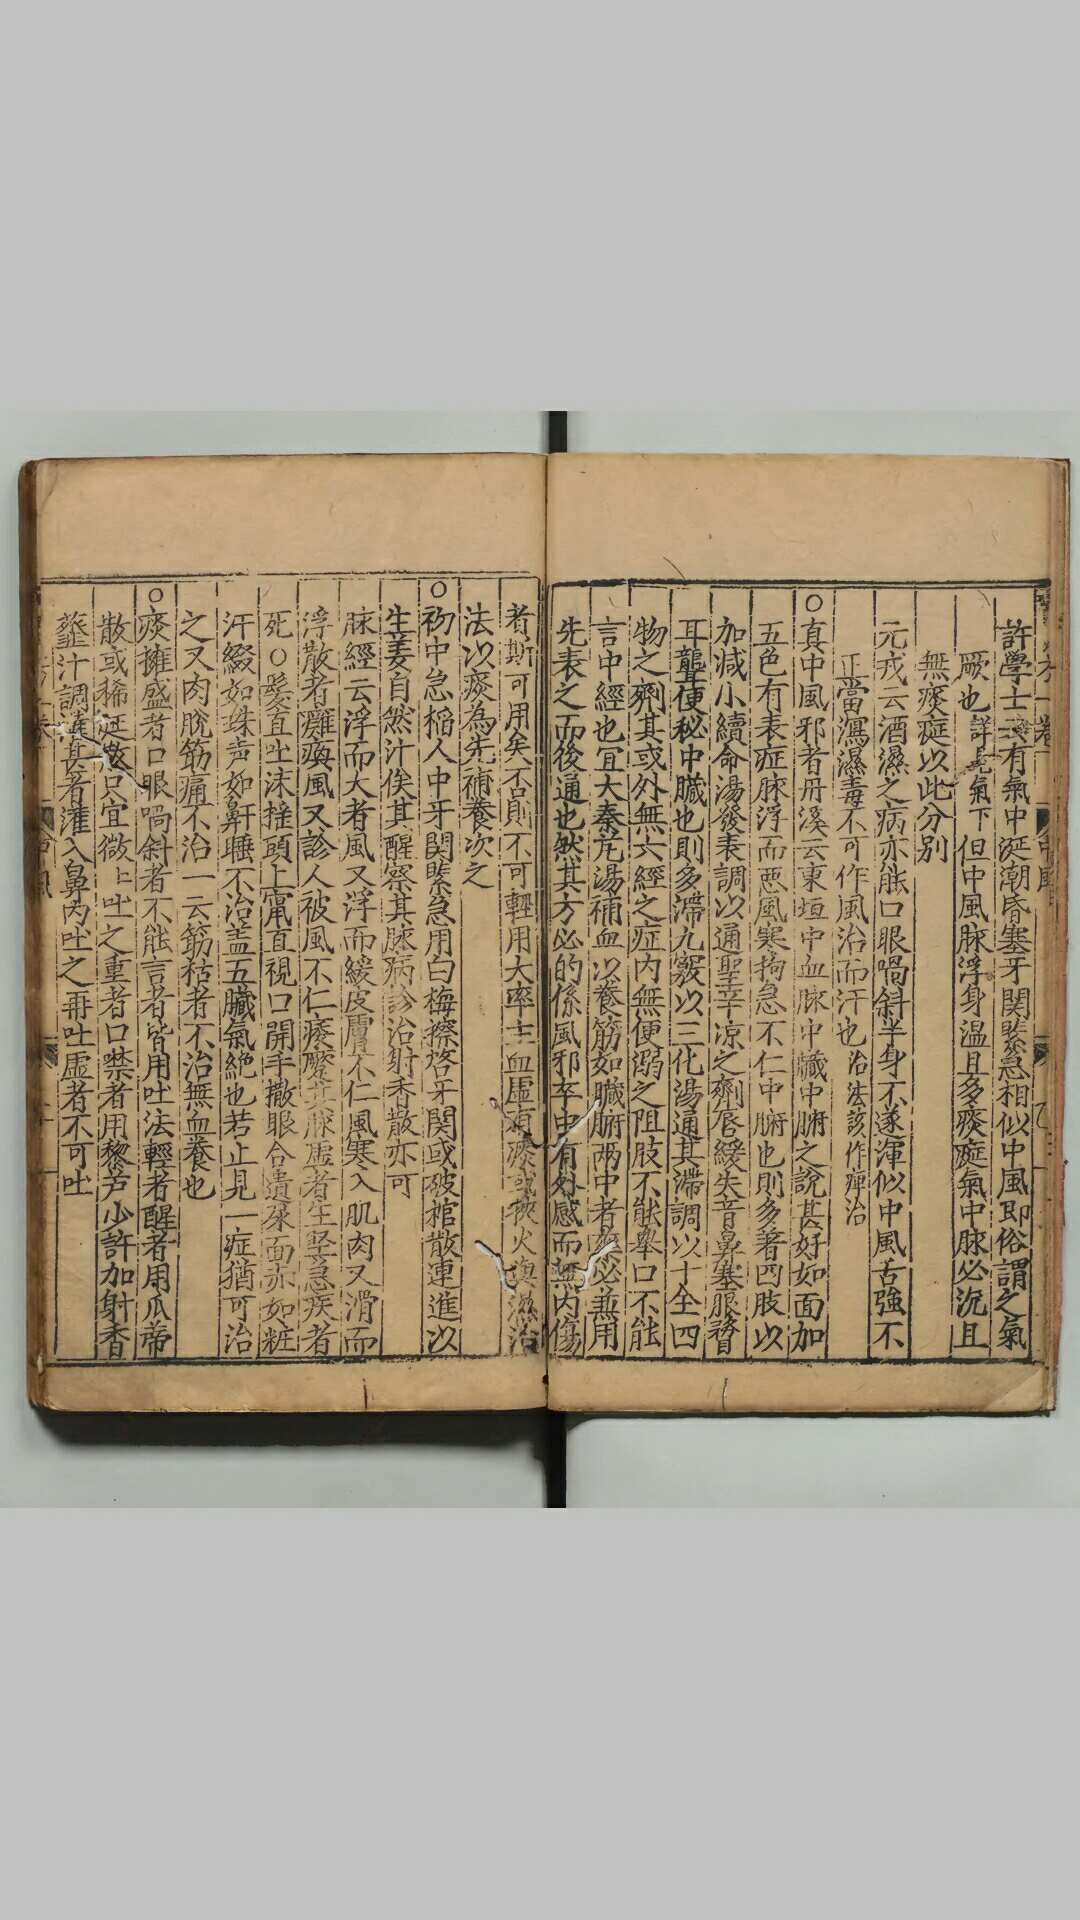 許學士云有氣中涎潮昏塞牙関緊急相似中風即俗謂之氣
厥也詳見氣下但中風脉浮身温且多痰涎氣中脉必沉且
無痰涎以此分别
元戎云酒濕之病亦能口眼喎斜半身不遂渾似中風舌強不
正當瀉濕毒不可作風治而汗也治法該作痺治
○真中風邪者丹溪云東垣中血脉中臟中腑之說甚好如面加
五色有表症脉浮而惡風寒拘急不仁中腑也則多著四肢以
加减小續命湯發表調以通聖辛凉之劑唇緩失音鼻塞眼瞀
耳聾便秘中臟也則多滯九竅以三化湯通其滯調以十全四
物之劑其或外無六經之症内無便溺之阻肢不能舉口不能
言中經也宜大秦艽湯補血以養筋如臟腑两中者藥必兼用
先表之而後通也然其方必的係風邪卒中有外感而無内傷
者斯可用矣否則不可輕用大率主血虛有痰或挾火與濕治
法以痰為先補養次之
○初中急掐人中牙関緊急用白梅擦啓牙関或破棺散連進以
生姜自然汁俟其醒察其脉病診治射香散亦可
脉經云浮而大者風又浮而緩皮膚不仁風寒入肌肉又滑而
浮散者癱瘓風又診人被風不仁痿蹷其脉虛者生坚急疾者
死○髮直吐沫揺頭上竄直視口開手撒眼合遺尿面赤如粧
汗綴如珠声如鼻鼾睡不治盖五臟氣絶也若止見一症猶可治
之又肉脫筋痛不治一云筋枯者不治無血養也
○痰擁盛者口眼喎斜者不能言者皆用吐法輕者醒者用瓜蒂
散或稀涎散只宜微上吐之重者口噤者用藜芦少許加射香
虀汁調灌其著灌入鼻内吐之再吐虛者不可吐